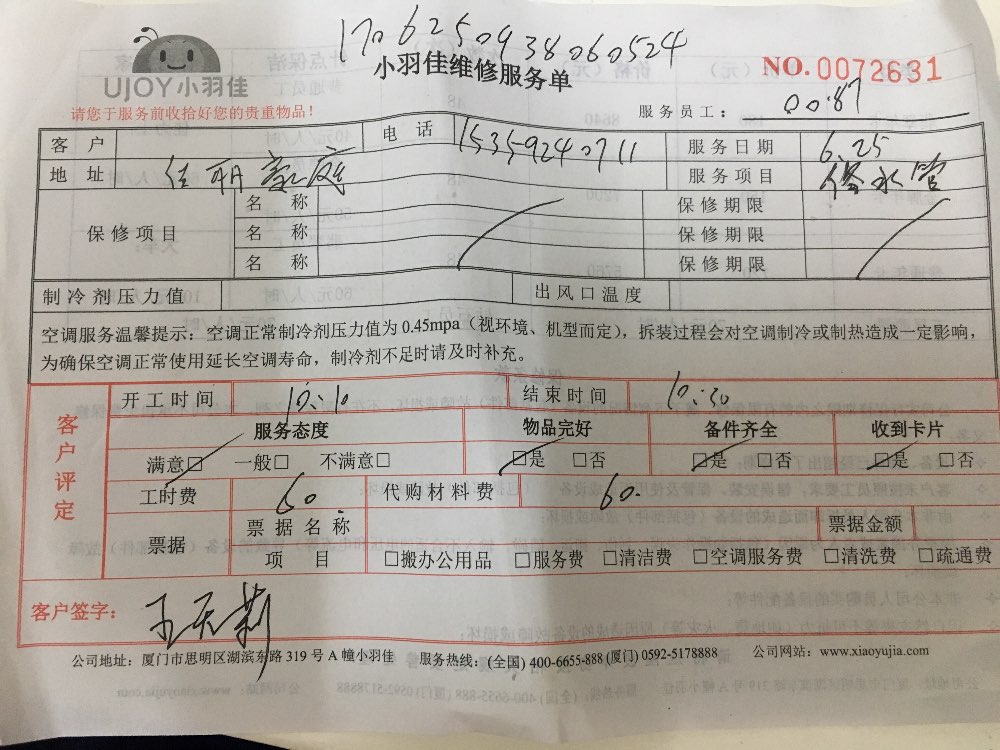 1706250938060524
UJOY小羽佳
小羽佳维修服务单
NO.0072631
请您于服务前收拾好您的贵重物品！
服务员工： 0087
客户 电话 15359240711 服务日期 6.25
地址 佳丽豪庭 服务项目 修水管
保修项目 名称 保修期限
名称 保修期限
名称 保修期限
制冷剂压力值 出风口温度
空调服务温馨提示：空调正常制冷剂压力值为0.45mpa（视环境、机型而定），拆装过程会对空调制冷或制热造成一定影响，
为确保空调正常使用延长空调寿命，制冷剂不足时请及时补充。
客户评定
开工时间 10:10 结束时间 10:30
服务态度 物品完好 备件齐全 收到卡片
满意□ 一般□ 不满意□ □是 □否 □是 □否 □是 □否
工时费 60 代购材料费 60.
票据 票据名称 票据金额
项目 □搬办公用品 □服务费 □清洁费 □空调服务费 □清洗费 □疏通费
客户签字： 王天莉
公司地址：厦门市思明区湖滨东路319号A幢小羽佳 服务热线：(全国) 400-6655-888 (厦门) 0592-5178888 公司网站：www.xiaoyujia.com